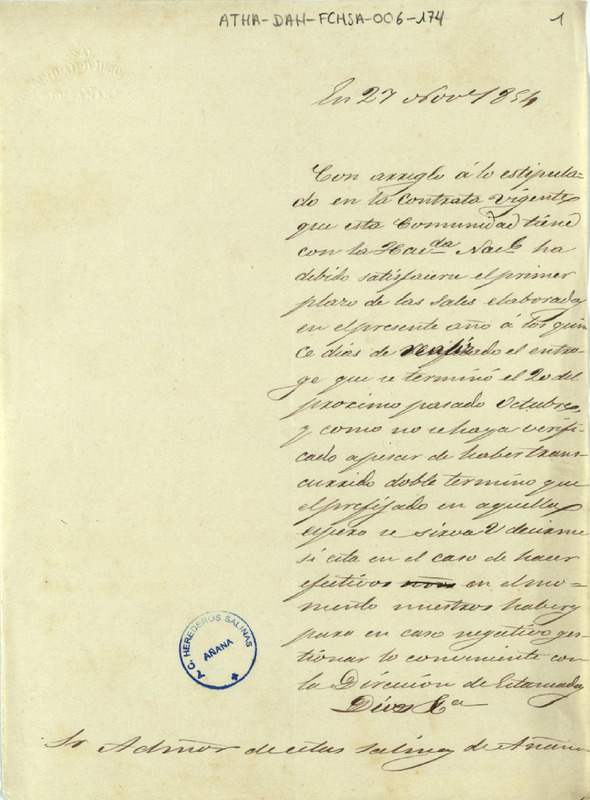 ATHA-DAH-FCHSA-006-174
1
DE AÑANA
En 27 Nove 1854
Con arreglo á lo estipula-
do en la contrata vigente
que esta Comunidad tiene
con la Hacda Nacl ha
debido satisfacerse el primer
plazo de las sales elaboradas
en el presente año á los quin
ce dias de realizado el entro-
ge que se terminó el 20 del
próximo pasado Octubre,
y como no se haya verifi-
cado apesar de haber trans-
currido doble termino que
el prefijado en aquella
espero se sirva V decirme
si esta en el caso de hacer
efectivos en el mo-
mento nuestros haberes
para en caso negativo ges-
tionar lo conveniente con
la Direccion de Estancadas
Dios &a
Sr Admor de estas salinas de Añana
A.C. HEREDEROS SALINAS
AÑANA